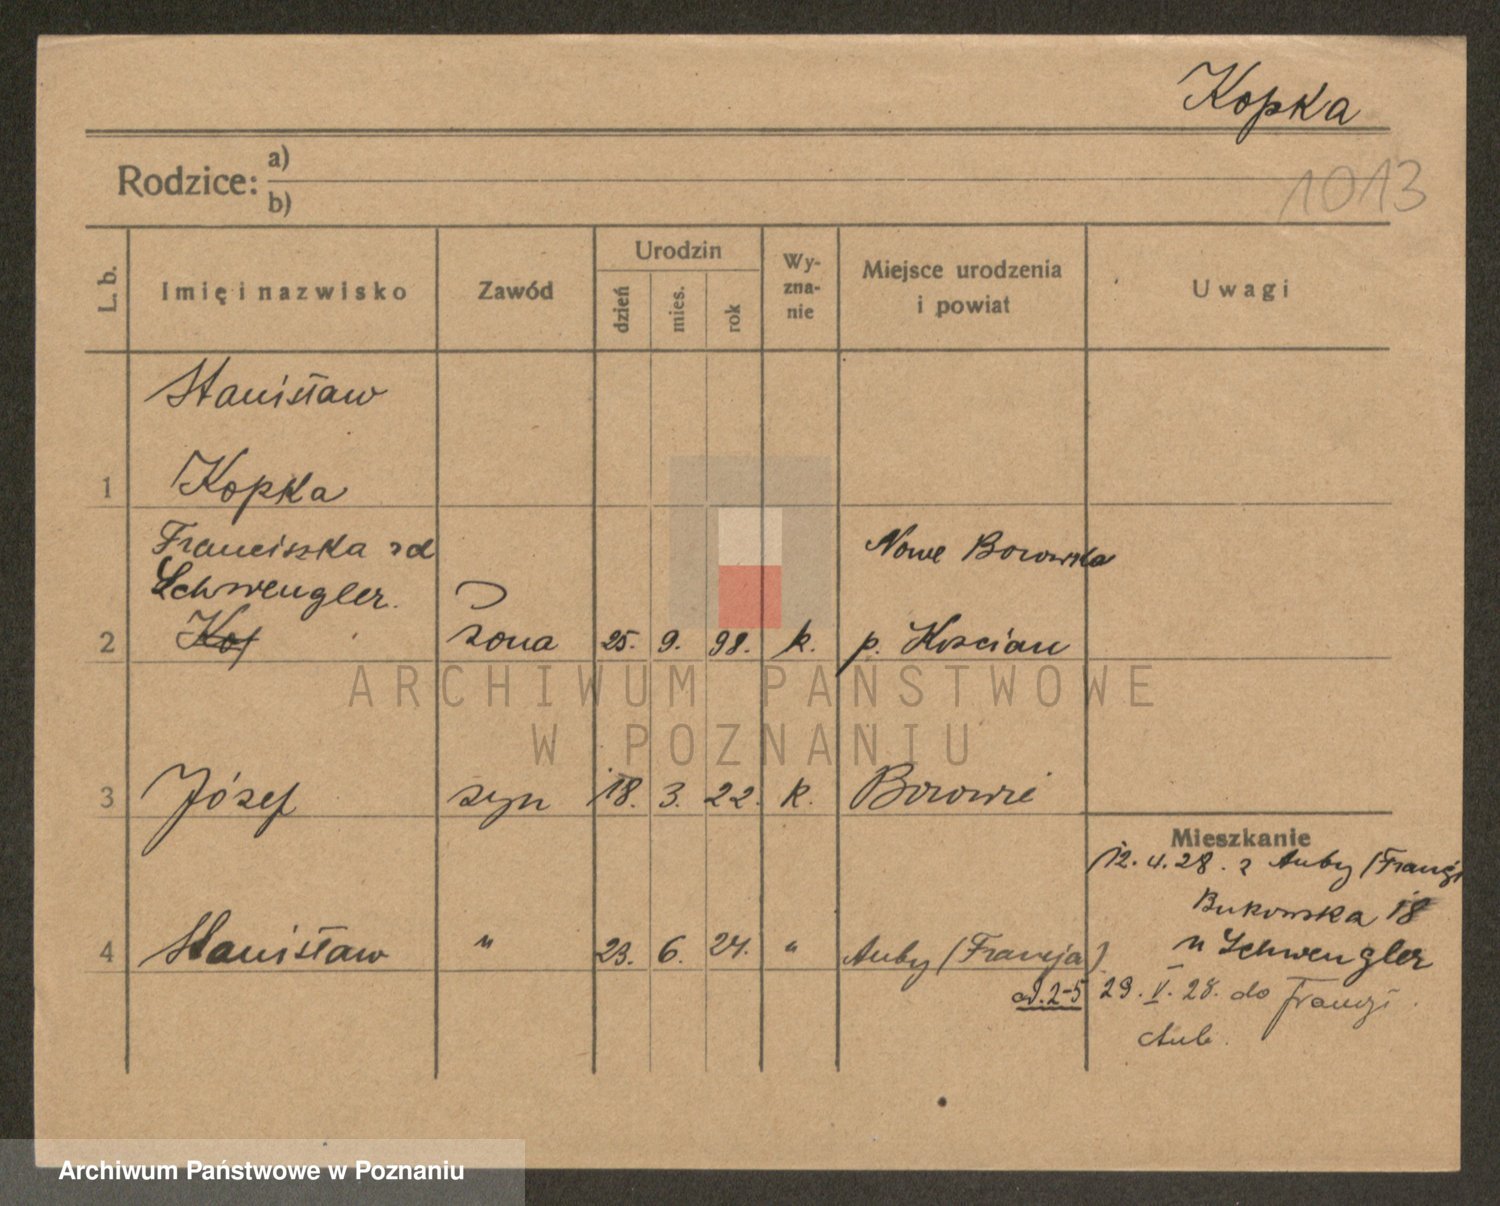 Kopka
1013
Rodzice: a)
b)
L. b.
Imię i nazwisko
Zawód
Urodzin
dzień
mies.
rok
Wy-
zna-
nie
Miejsce urodzenia
i powiat
Uwagi
Stanisław
1 Kopka
Franciszka zd
Schwengler.
Nowe Borowska
2 żona 25. 9. 98. k. p. Kościan
3 Józef syn 18. 3. 22. k. Borowie
Mieszkanie
12. 4. 28. z Auby (Francji
Bukowska 18
4 Stanisław " 23. 6. 24. " Auby (Francja)
u Schwengler
od. 2-5 29. V. 28. do Francji
Aub.
ARCHIWUM PAŃSTWOWE
W POZNANIU
Archiwum Państwowe w Poznaniu